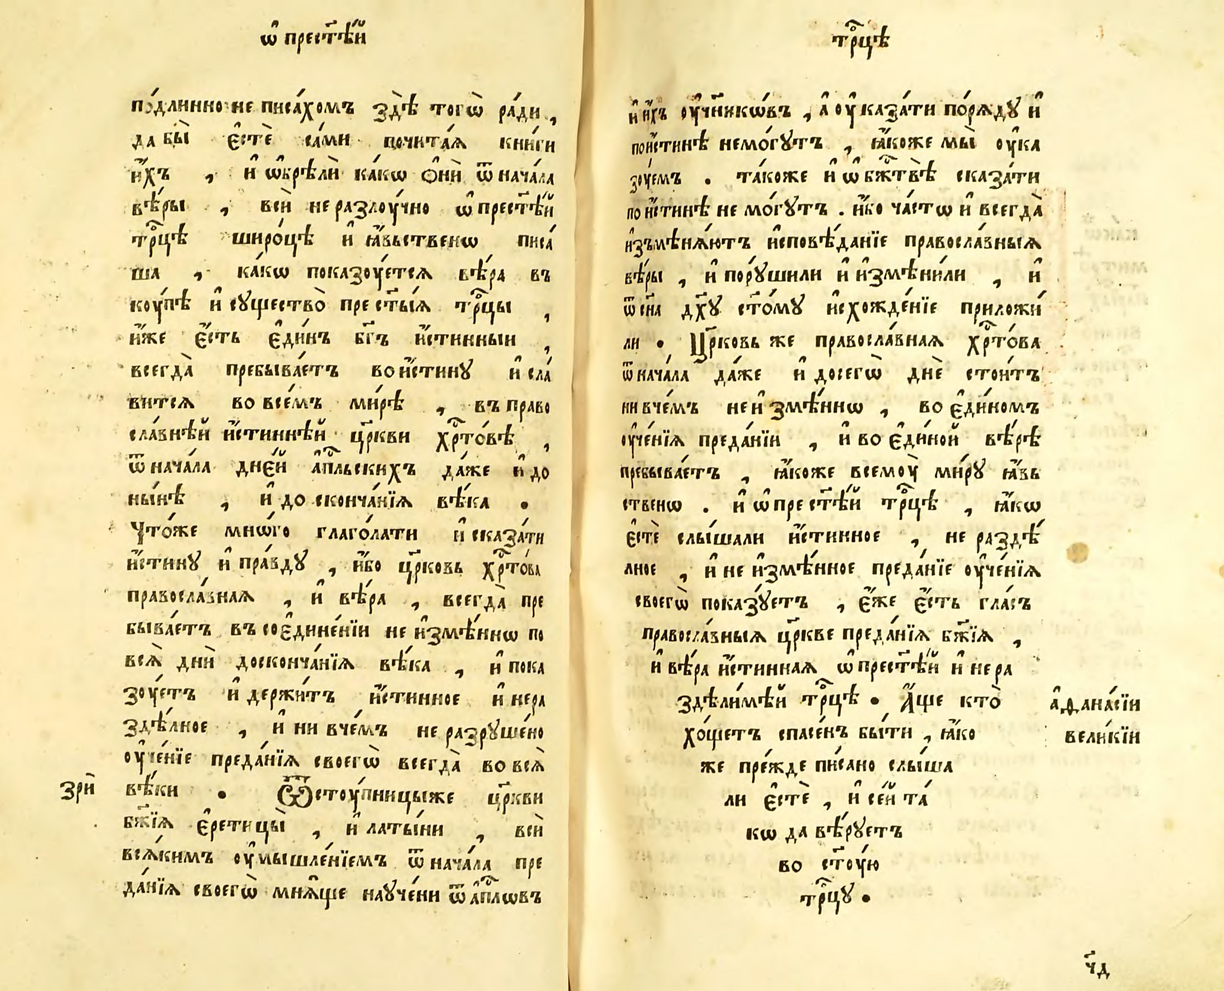 ѡ҆ прест҃ѣ́й
по́длинно не писа́хомъ здѣ̀ тогѡ̀ ра́ди ,
да бы̀ є҆стѐ са́ми почита́ѧ кни́ги
и҆́хъ , и҆ ѡ҆брѣли̑ ка́кѡ ѻ҆нѝ ѿ нача́ла
вѣ́ры , всѝ не разлоу́чно ѡ҆ прест҃ѣ́й
трⷪ҇цѣ широ́цѣ и҆ ꙗ҆́вьственѡ писа́
ша , ка́кѡ показоу́етсѧ вѣ́ра въ
коу́пѣ и҆ существо̀ прест҃ы́ѧ трⷪ҇цы ,
и҆́же є҆́сть є҆ди́нъ бг҃ъ и҆́стинныи ,
всегда̀ пребыва́етъ вои́стину и҆ сла́
витсѧ во все́мъ ми́рѣ , въ право
сла́внѣй и҆́стиннѣй цр҃кви хрⷭ҇то́вѣ ,
ѿ нача́ла дне́й а҆пⷭ҇льскихъ да́же и҆ до
ны́нѣ , и҆ до сконча́нїѧ вѣ́ка .
Что́же мно́гѡ глаго́лати и҆ сказа́ти
и҆́стину и҆ пра́вду , и҆́бо цр҃ковь хрⷭ҇то́ва
правосла́внаѧ , и҆ вѣ́ра , всегда̀ пре
быва́етъ въ сое҆дине́нїи не и҆змѣ́ннѡ по
всѧ̀ днѝ досконча́нїѧ вѣ́ка , и҆ пока
зоу́етъ и҆ держи́тъ и҆́стинное и҆ нера
здѣ́лное , и҆ ни вче́мъ не разруше́но
оу҆че́нїе преда́нїѧ своегѡ̀ всегда̀ во всѧ̀
зрѝ
вѣ́ки . Ѿстоу́пницыже цр҃кви
бж҃їѧ є҆ретицы̀ , и҆ латы́ни , всѝ
всѧ́кимъ оу҆мышле́нїемъ ѿ нача́ла пре
да́нїѧ своегѡ̀ мнѧ́ще науче́ни ѿ а҆пⷭ҇лѡвъ
трⷪ҇цѣ
и҆ и҆́хъ оу҆чн҃икѡ́въ , а҆ оу҆каза́ти порѧ́ду и҆
пои́стинѣ немо́гутъ , ꙗ҆́коже мы̀ оу҆ка
зоу́емъ . та́коже и҆ ѡ҆ бж҃твѣ̀ сказа́ти
по и҆́стинѣ не мо́гутъ . и҆́бо ча́стѡ и҆ всегда̀
и҆зъмѣнѧ́ютъ и҆сповѣ́данїе правосла́вныѧ
вѣ́ры , и҆ пору́шили и҆ и҆змѣни́ли , и҆
ѿ сн҃а дх҃у ст҃о́му и҆схожде́нїе приложи́
ли . Цр҃ковь же правосла́внаѧ хрⷭ҇то́ва
ѿ нача́ла да́же и҆ досегѡ̀ днѐ стои́тъ
ни вче́мъ не и҆змѣ́ннѡ , во є҆ди́номъ
оу҆че́нїѧ преда́нїи , и҆ во є҆ди́ной вѣ́рѣ
пребыва́етъ , ꙗ҆́коже всемоу̀ ми́ру ꙗ҆́вь
ственѡ . и҆ ѡ҆ прест҃ѣ́й трⷪ҇цѣ , ꙗ҆́кѡ
є҆стѐ слы́шали и҆́стинное , не раздѣ́
лное , и҆ не и҆змѣ́нное преда́нїе оу҆че́нїѧ
своегѡ̀ показу́етъ , є҆́же є҆́сть гла́съ
правосла́вныѧ цр҃кве преда́нїѧ бж҃їѧ ,
и҆ вѣ́ра и҆́стиннаѧ ѡ҆ прест҃ѣ́й и҆ нера
здѣли́мѣй трⷪ҇цѣ . А҆́ще кто̀
а҆фана́сїи
хо́щетъ спасе́нъ бы́ти , ꙗ҆́ко
вели́кїи
же пре́жде пи́сано слы́ша
ли є҆стѐ , и҆ се́й та́
кѡ да вѣ́руетъ
во ст҃оу́ю
трⷪ҇цу .
ч҃д